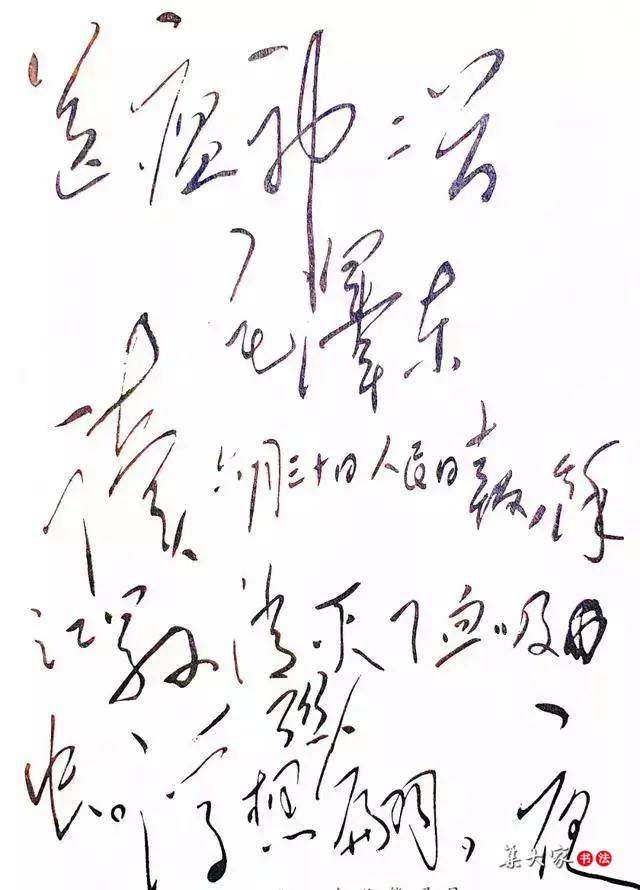 送瘟神二首
毛澤东
讀六月三十日人民日報,餘
江縣消灭了血吸
虫。浮想聯翩,夜
集大家 书法